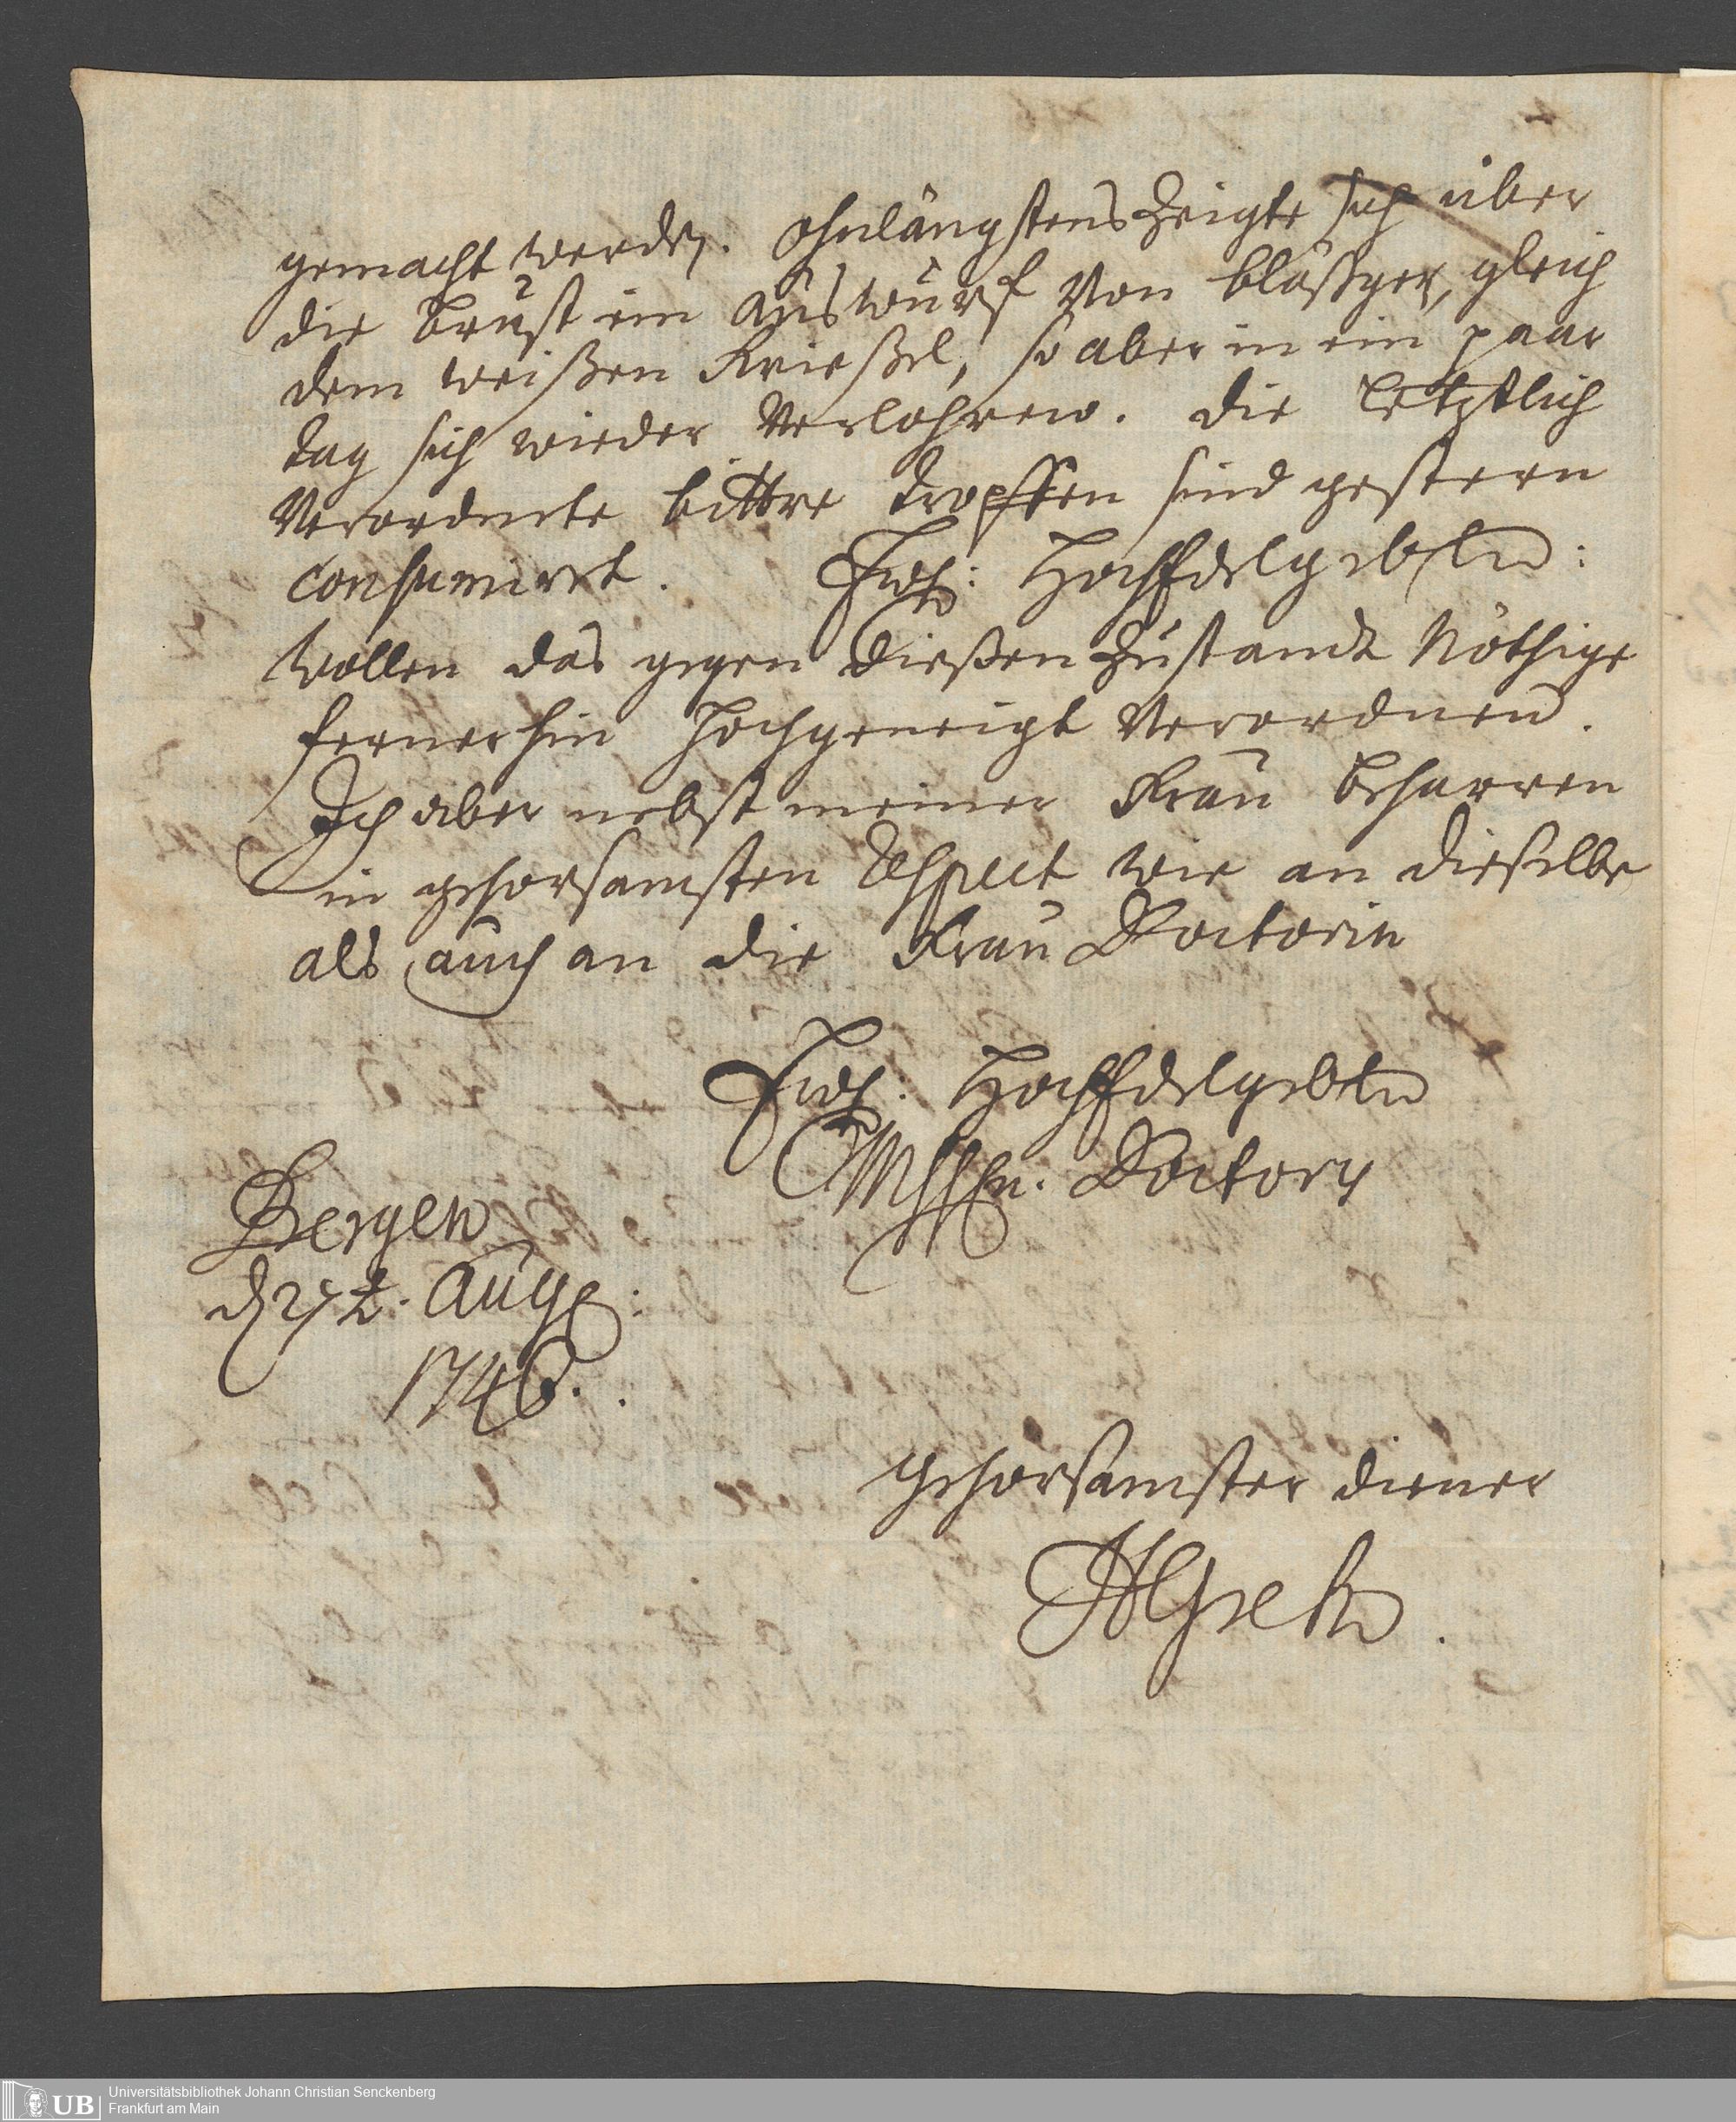 gemacht werden. Ohnlängstens zeigte sich über
die Brust ein Außwurf von bläßger, gleich
dem weißen Frießel, so aber in ein paar
tag sich wieder verlohren. Die letztlich
verordnete bittre tropffen sind gestern
consumirt. Ew: HochEdelgebln:
wollen das gegen dießen Zustandt nöthige
fernerhin hochgeneigt verordnen.
Ich aber nebst meiner Frau beharren
in gehorsamsten Respect wie an dieselbe
als auch an die Frau Doctorin
Ew: HochEdelgebln
MhhHn. Doctors
Bergen
d 27t. Aug:
1746.
gehorsamster diener
Universitätsbibliothek Johann Christian Senckenberg
Frankfurt am Main
UB